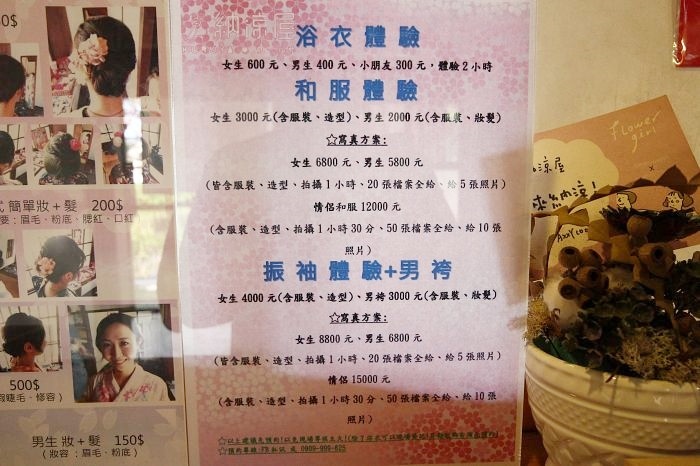 50$
式 簡單妝+髮 200$
要:眉毛、粉底、腮紅、口紅
500$
假睫毛、修容)
男生 妝+髮 150$
(妝容:眉毛、粉底)
納涼屋
浴衣體驗
女生 600 元、男生 400 元、小朋友 300 元,體驗 2 小時
和服體驗
女生 3000 元(含服裝、造型)、男生 2000 元(含服裝、妝髮)
☆寫真方案:
女生 6800 元、男生 5800 元
(皆含服裝、造型、拍攝 1 小時、20 張檔案全給、給 5 張照片)
情侶和服 12000 元
(含服裝、造型、拍攝 1 小時 30 分、50 張檔案全給、給 10 張
照片)
振袖體驗+男袴
女生 4000 元(含服裝、造型)、男袴 3000 元(含服裝、妝髮)
☆寫真方案:
女生 8800 元、男生 6800 元
(皆含服裝、造型、拍攝 1 小時、20 張檔案全給、給 5 張照片)
情侶 15000 元
(含服裝、造型、拍攝 1 小時 30 分、50 張檔案全給、給 10 張
照片)
☆以上建議先預約!以免現場等候太久!(除了浴衣可以現場
☆預約專線:FB 私訊 或 0909-999-625
flower
girl
涼屋
來納涼!